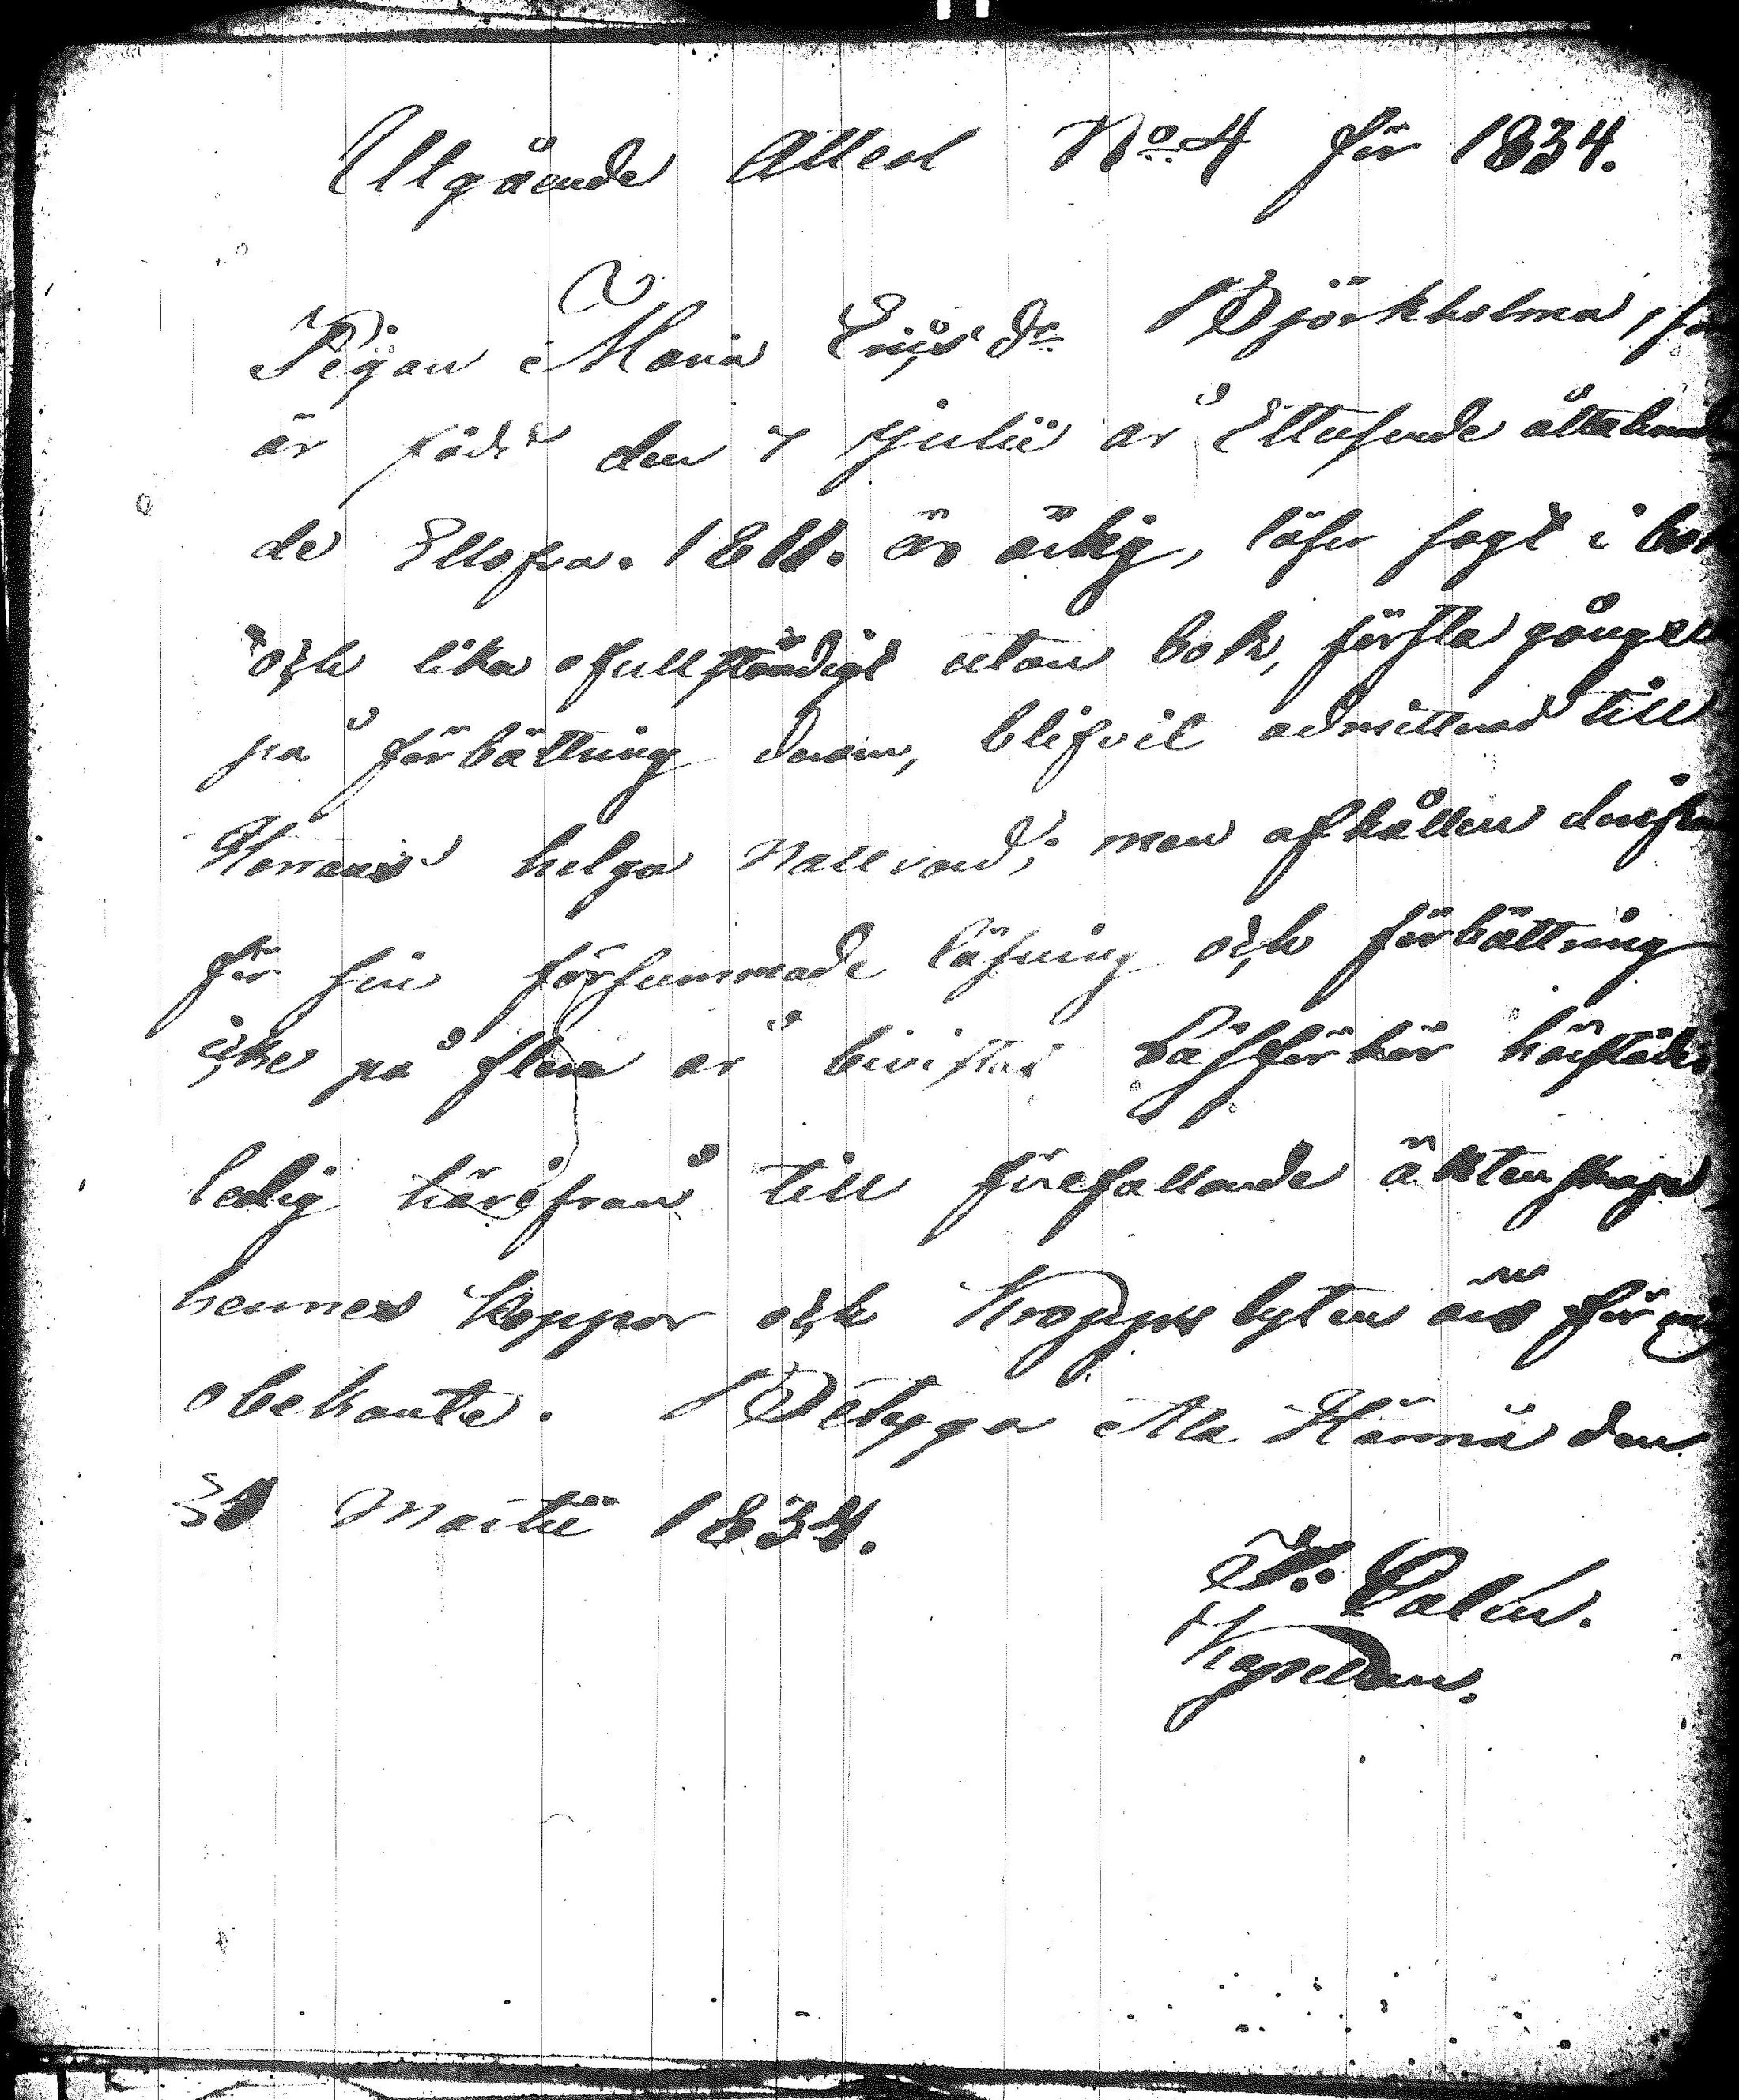 Utgående Attest No 4 för 1834.
Pigan Maria Erics dr Björkholma, som
är född den 7 Julii år Ettusende åttahund
de Ellofva. 1811. är ärlig, läser svagt i bok
och lika ofullständigt utan bok, första gången
på förbättring derom, blifvit admitterad till
Herrans helga Nattvard; men afhållen
för sin försummade läsning och förbättring
icke på flera år bivistat Läsförhör härstädes
ledig härifrån till förefallande äktenskap
hennes koppor och Kroppslyten äro för mig
obekante. Betygar Ala Härmä den
31 Martii 1834.
Calm.
Kapellan.